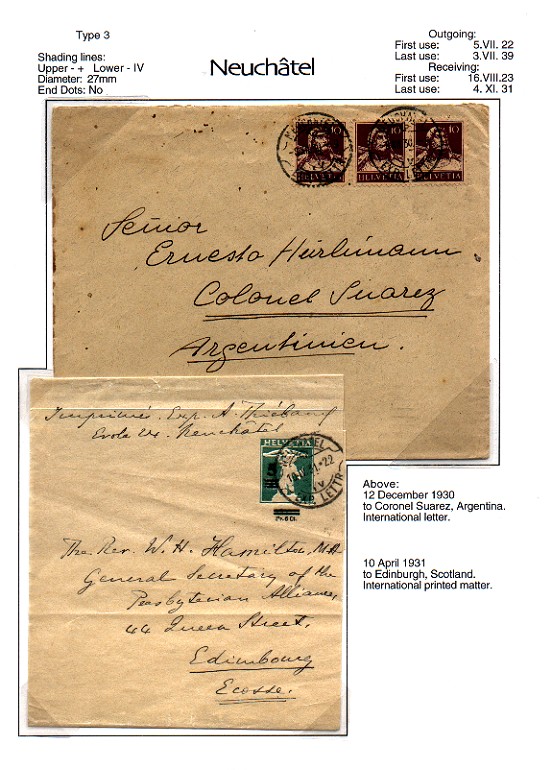 Type 3
Shading lines:
Upper - +   Lower - IV
Diameter: 27mm
End Dots: No
Neuchâtel
Outgoing:
First use: 5.VII. 22
Last use: 3.VII. 39
Receiving:
First use: 16.VIII.23
Last use: 4. XI. 31
10 10 10
HELVETIA HELVETIA HELVETIA
Señor
Ernesto Hürlimann
Colonel Suarez
Argentinien.
Imprimés. Exp. A. Thiébaud
Evole Neuchâtel
HELVETIA
The Rev. W. H. Hamilton, M.A
General Secretary of the
Presbyterian Alliance,
44 Queen Street,
Edimbourg
Ecosse.
Above:
12 December 1930
to Coronel Suarez, Argentina.
International letter.
10 April 1931
to Edinburgh, Scotland.
International printed matter.